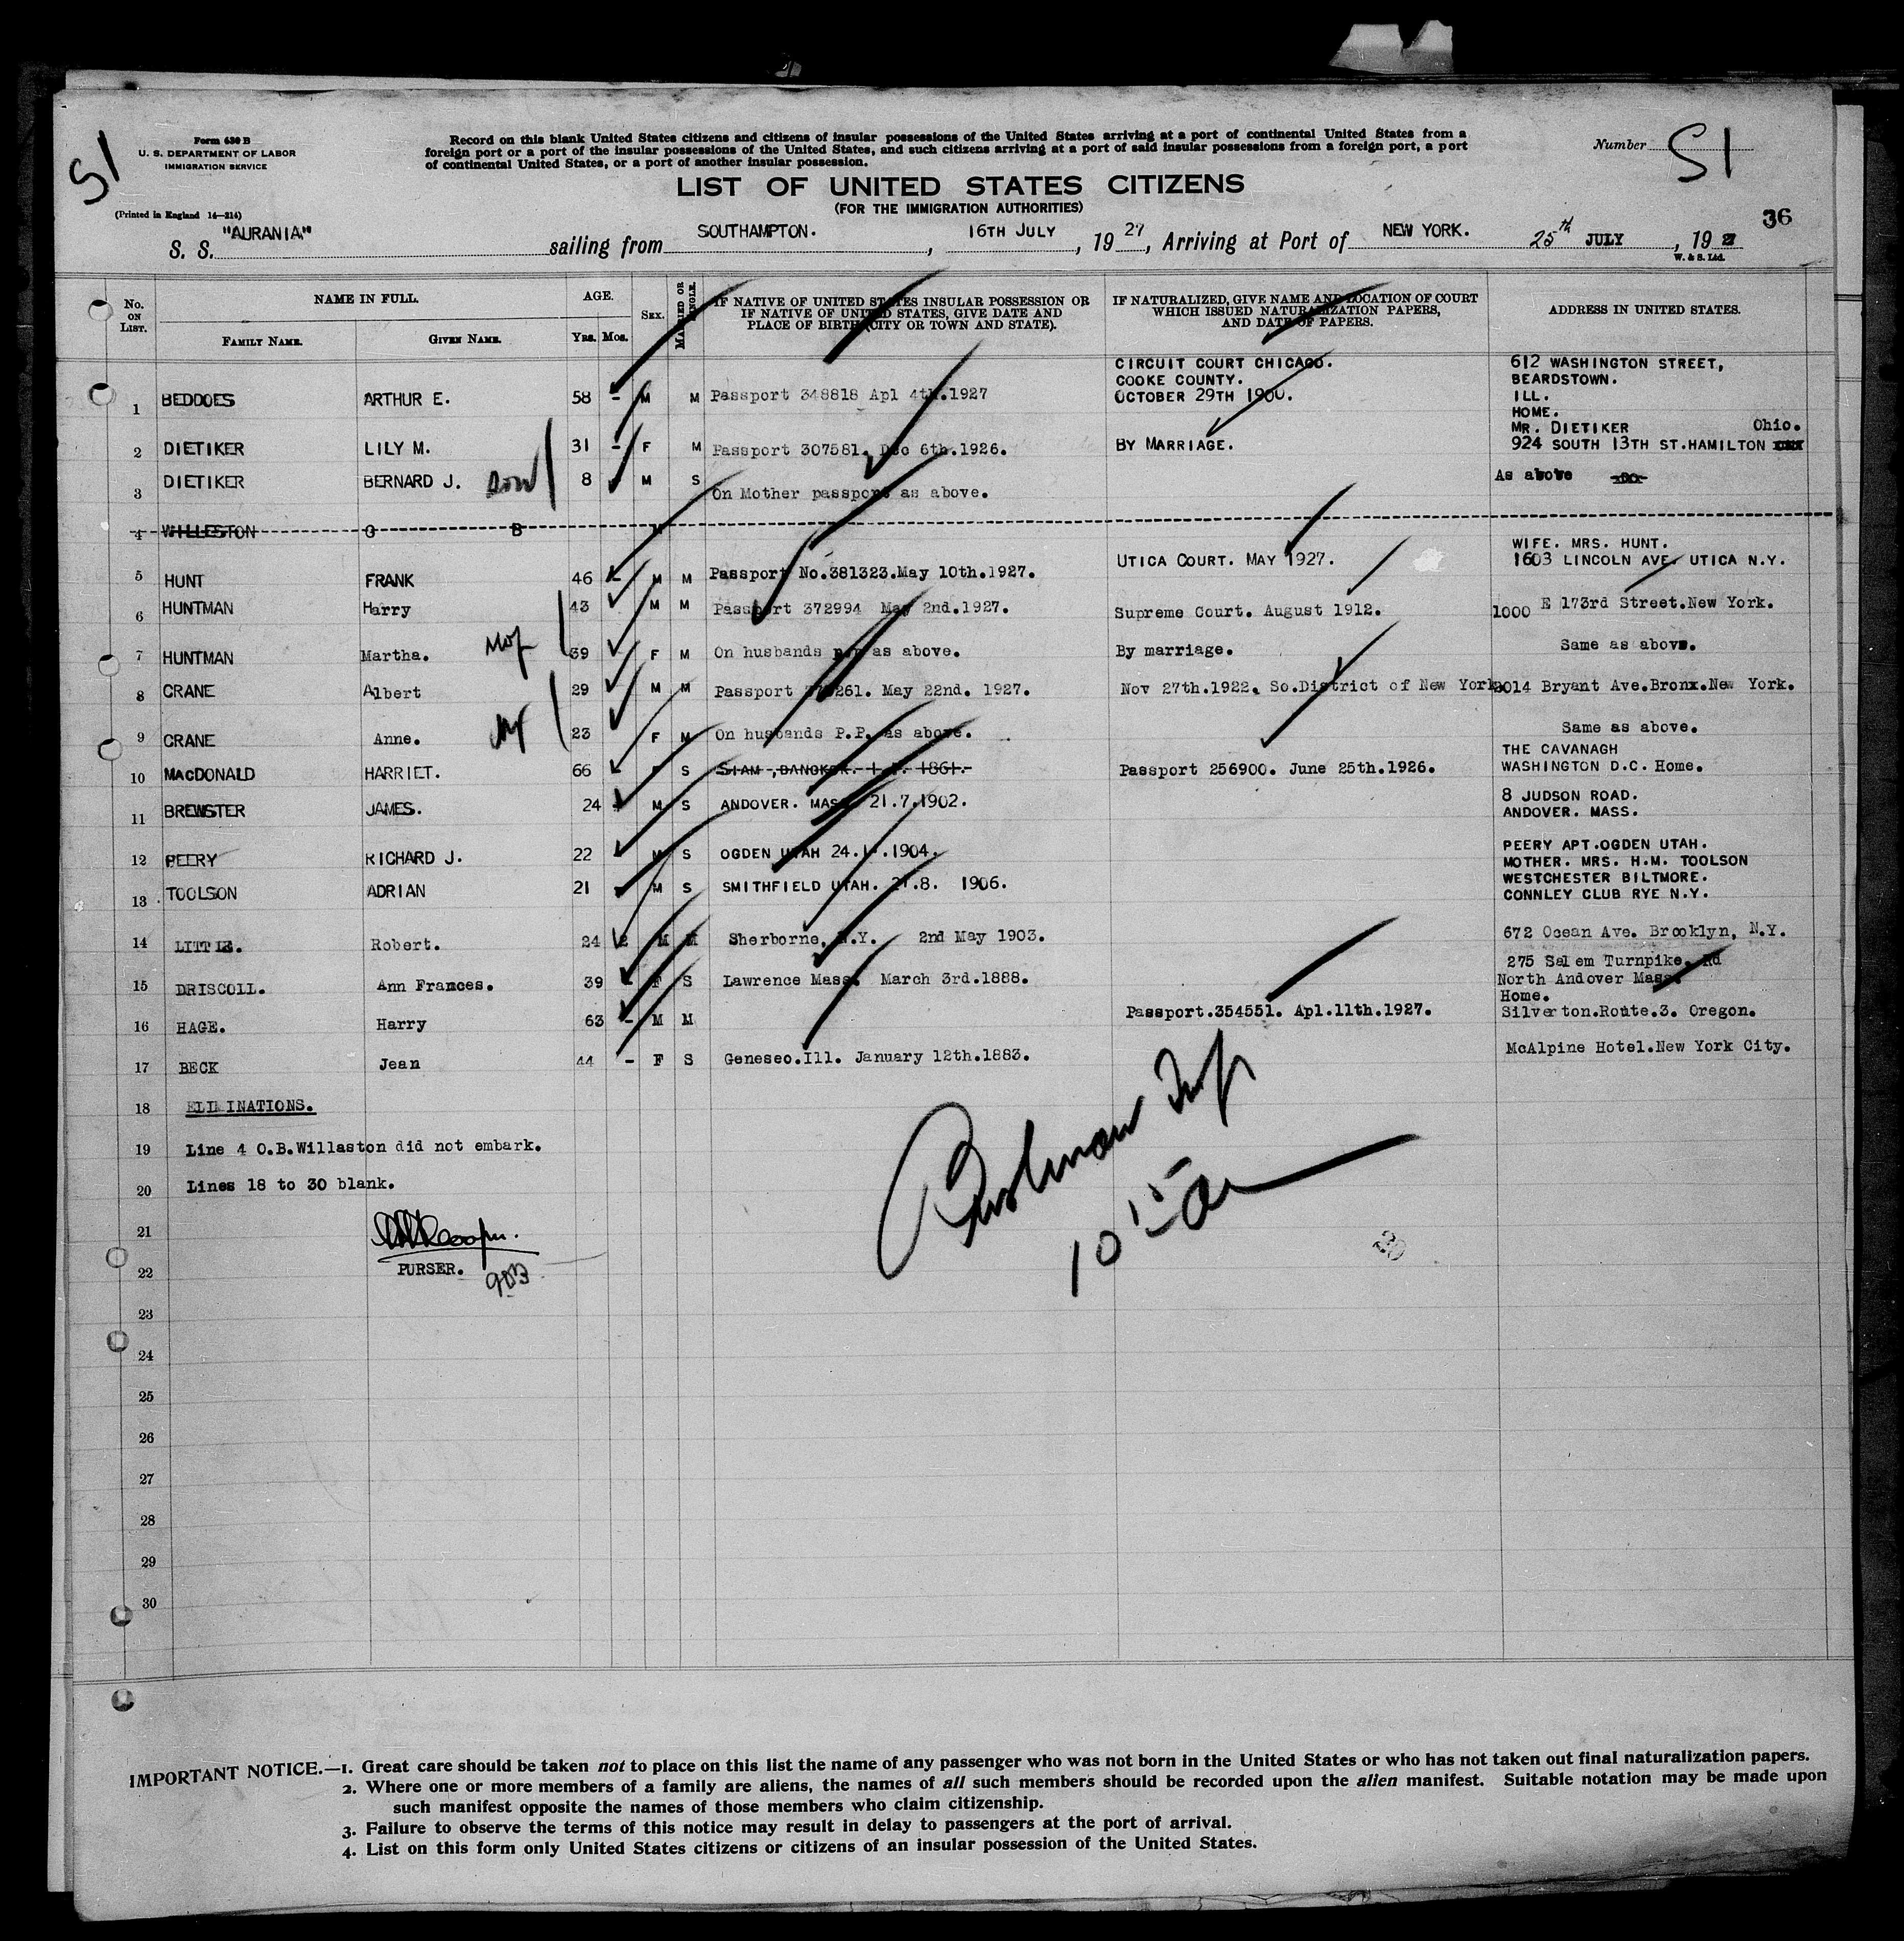 S1
Form 630 B
U. S. DEPARTMENT OF LABOR
IMMIGRATION SERVICE
(Printed in England 14—214)
Record on this blank United States citizens and citizens of insular possessions of the United States arriving at a port of continental United States from a
foreign port or a port of the insular possessions of the United States, and such citizens arriving at a port of said insular possessions from a foreign port, a port
of continental United States, or a port of another insular possession.
Number S1
LIST OF UNITED STATES CITIZENS
(FOR THE IMMIGRATION AUTHORITIES)
36
S. S. "AURANIA" sailing from SOUTHAMPTON. , 16TH JULY , 19 27 , Arriving at Port of NEW YORK. 25th JULY , 19 27
W. & S. Ltd.
No. ON LIST. NAME IN FULL. FAMILY NAME. GIVEN NAME. AGE. YRS. MOS. SEX. MARRIED OR SINGLE. IF NATIVE OF UNITED STATES INSULAR POSSESSION OR IF NATIVE OF UNITED STATES, GIVE DATE AND PLACE OF BIRTH (CITY OR TOWN AND STATE). IF NATURALIZED, GIVE NAME AND LOCATION OF COURT WHICH ISSUED NATURALIZATION PAPERS, AND DATE OF PAPERS. ADDRESS IN UNITED STATES.
1 BEDDOES ARTHUR E. 58 - M M Passport 348818 Apl 4th.1927 CIRCUIT COURT CHICAGO. COOKE COUNTY. OCTOBER 29TH 1900. 612 WASHINGTON STREET, BEARDSTOWN. ILL. HOME.
2 DIETIKER LILY M. 31 - F M Passport 307581. Dec 6th.1926. BY MARRIAGE. MR. DIETIKER 924 SOUTH 13TH ST.HAMILTON Ohio.
3 DIETIKER BERNARD J. 8 M S On Mother passport as above. As above -do-
4 WILLESTON O B M
5 HUNT FRANK 46 - M M Passport No.381323.May 10th.1927. UTICA COURT. MAY 1927. WIFE. MRS. HUNT. 1603 LINCOLN AVE. UTICA N.Y.
6 HUNTMAN Harry 43 M M Passport 372994 May 2nd.1927. Supreme Court. August 1912. 1000 E 173rd Street.New York.
7 HUNTMAN Martha. 39 F M On husbands p.p as above. By marriage. Same as above.
8 CRANE Albert 29 M M Passport 261. May 22nd. 1927. Nov 27th.1922. So.District of New York. 3014 Bryant Ave.Bronx.New York.
9 CRANE Anne. 23 F M On husbands P.P. as above. Same as above.
10 MACDONALD HARRIET. 66 F S SIAM ,BANGKOK. 1861. Passport 256900. June 25th.1926. THE CAVANAGH WASHINGTON D.C. Home.
11 BREWSTER JAMES. 24 - M S ANDOVER. MASS. 21.7.1902. 8 JUDSON ROAD. ANDOVER. MASS.
12 PEERY RICHARD J. 22 M S OGDEN UTAH 24. .1904. PEERY APT.OGDEN UTAH.
13 TOOLSON ADRIAN 21 - M S SMITHFIELD UTAH. 8. 1906. MOTHER. MRS. H.M. TOOLSON WESTCHESTER BILTMORE. CONNLEY CLUB RYE N.Y.
14 LITTLE. Robert. 24 2 M M Sherborne, N.Y. 2nd May 1903. 672 Ocean Ave. Brooklyn, N.Y.
15 DRISCOLL. Ann Frances. 39 - F S Lawrence Mass. March 3rd.1888. 275 Salem Turnpike. Rd North Andover Mass. Home.
16 HAGE. Harry 63 - M M Passport.354551. Apl.11th.1927. Silverton.Route.3. Oregon.
17 BECK Jean 44 - F S Geneseo.Ill. January 12th.1883. McAlpine Hotel.New York City.
18 ELIMINATIONS.
19 Line 4 O.B.Willaston did not embark.
20 Lines 18 to 30 blank.
21
PURSER.
22
23
24
25
26
27
28
29
30
20
IMPORTANT NOTICE.—1. Great care should be taken not to place on this list the name of any passenger who was not born in the United States or who has not taken out final naturalization papers.
2. Where one or more members of a family are aliens, the names of all such members should be recorded upon the alien manifest. Suitable notation may be made upon
such manifest opposite the names of those members who claim citizenship.
3. Failure to observe the terms of this notice may result in delay to passengers at the port of arrival.
4. List on this form only United States citizens or citizens of an insular possession of the United States.